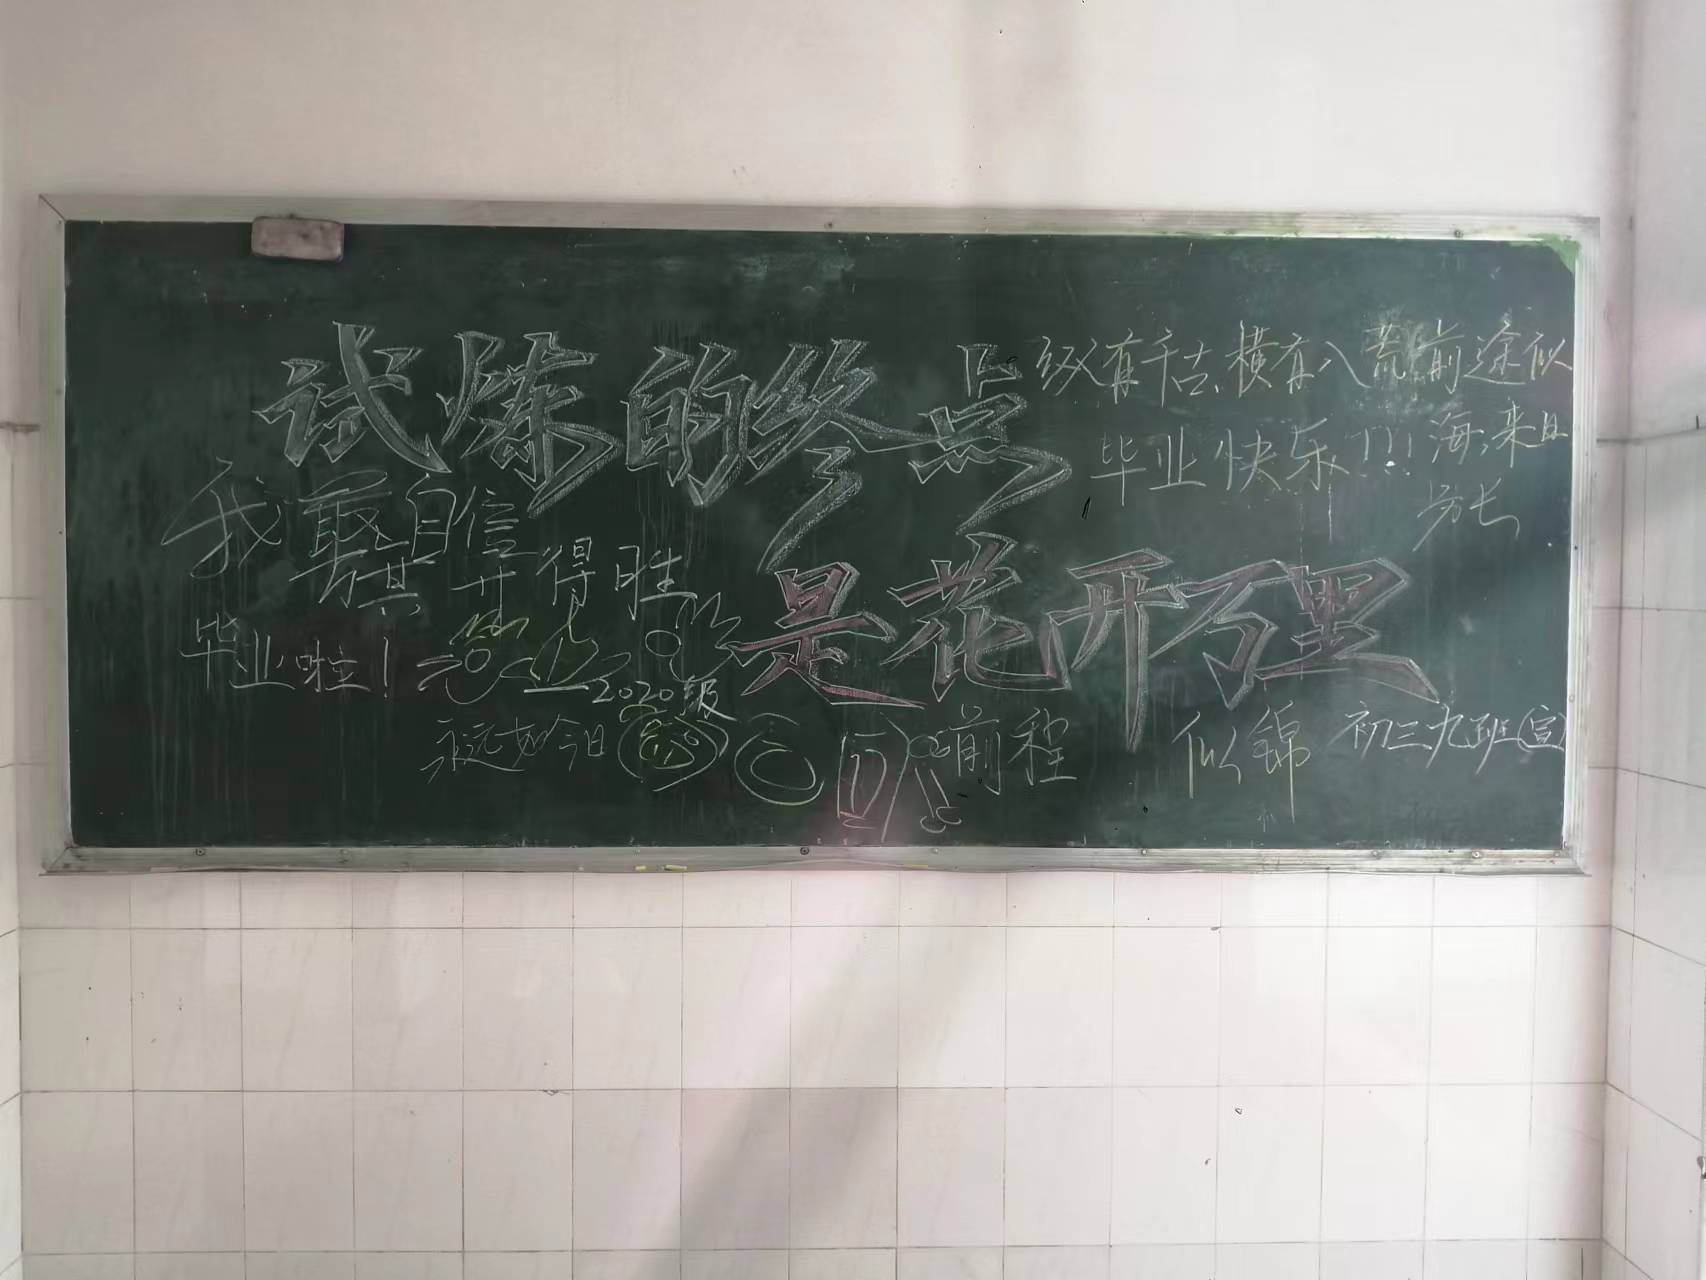 试炼的终点
纵有千古,横有八荒,前途似
海,来日
方长
毕业快乐!!!
我最自信
旗开得胜
是花开万里
毕业啦!
2020级
永远如今日
前程 似锦
初三九班(宣)